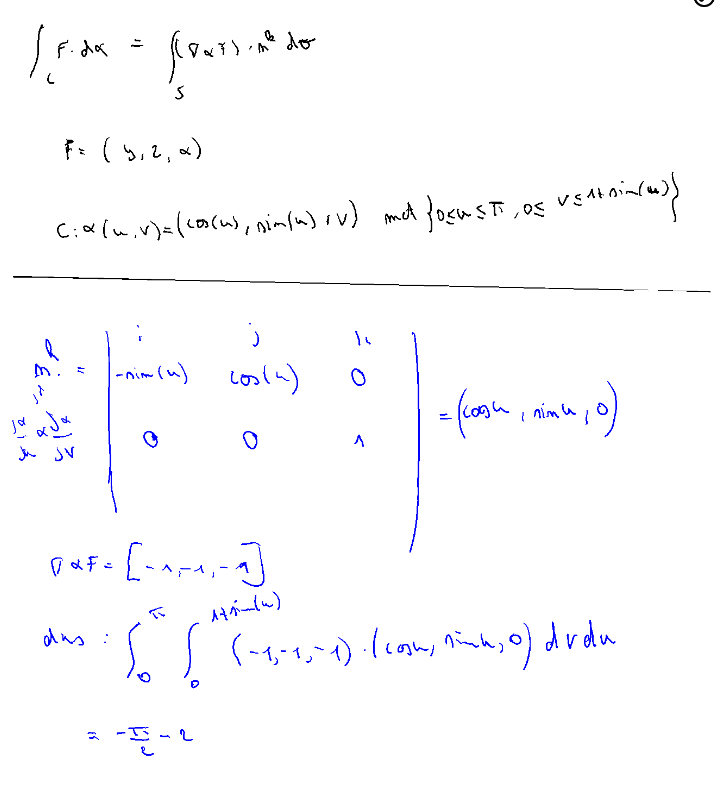 ∫_C F·dα = ∫∫_S (∇×F)·n dσ
F = (y, z, x)
C: α(u,v) = (cos(u), sin(u), v) met {0≤u≤π, 0≤v≤1+sin(u)}
i j k
n: = | -sin(u) cos(u) 0 | = (cos u, sin u, 0)
∂α/∂u × ∂α/∂v | 0 0 1 |
∇×F = [-1, -1, -1]
dus: ∫_0^π ∫_0^{1+sin(u)} (-1,-1,-1)·(cos u, sin u, 0) dv du
= -π/2 - 2